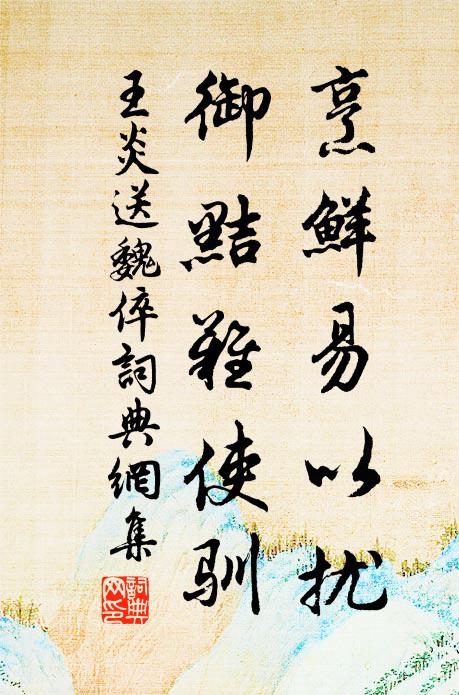 烹鮮易以扰
御黠難使馴
王炎送魏倅詞典網集
詞典网印